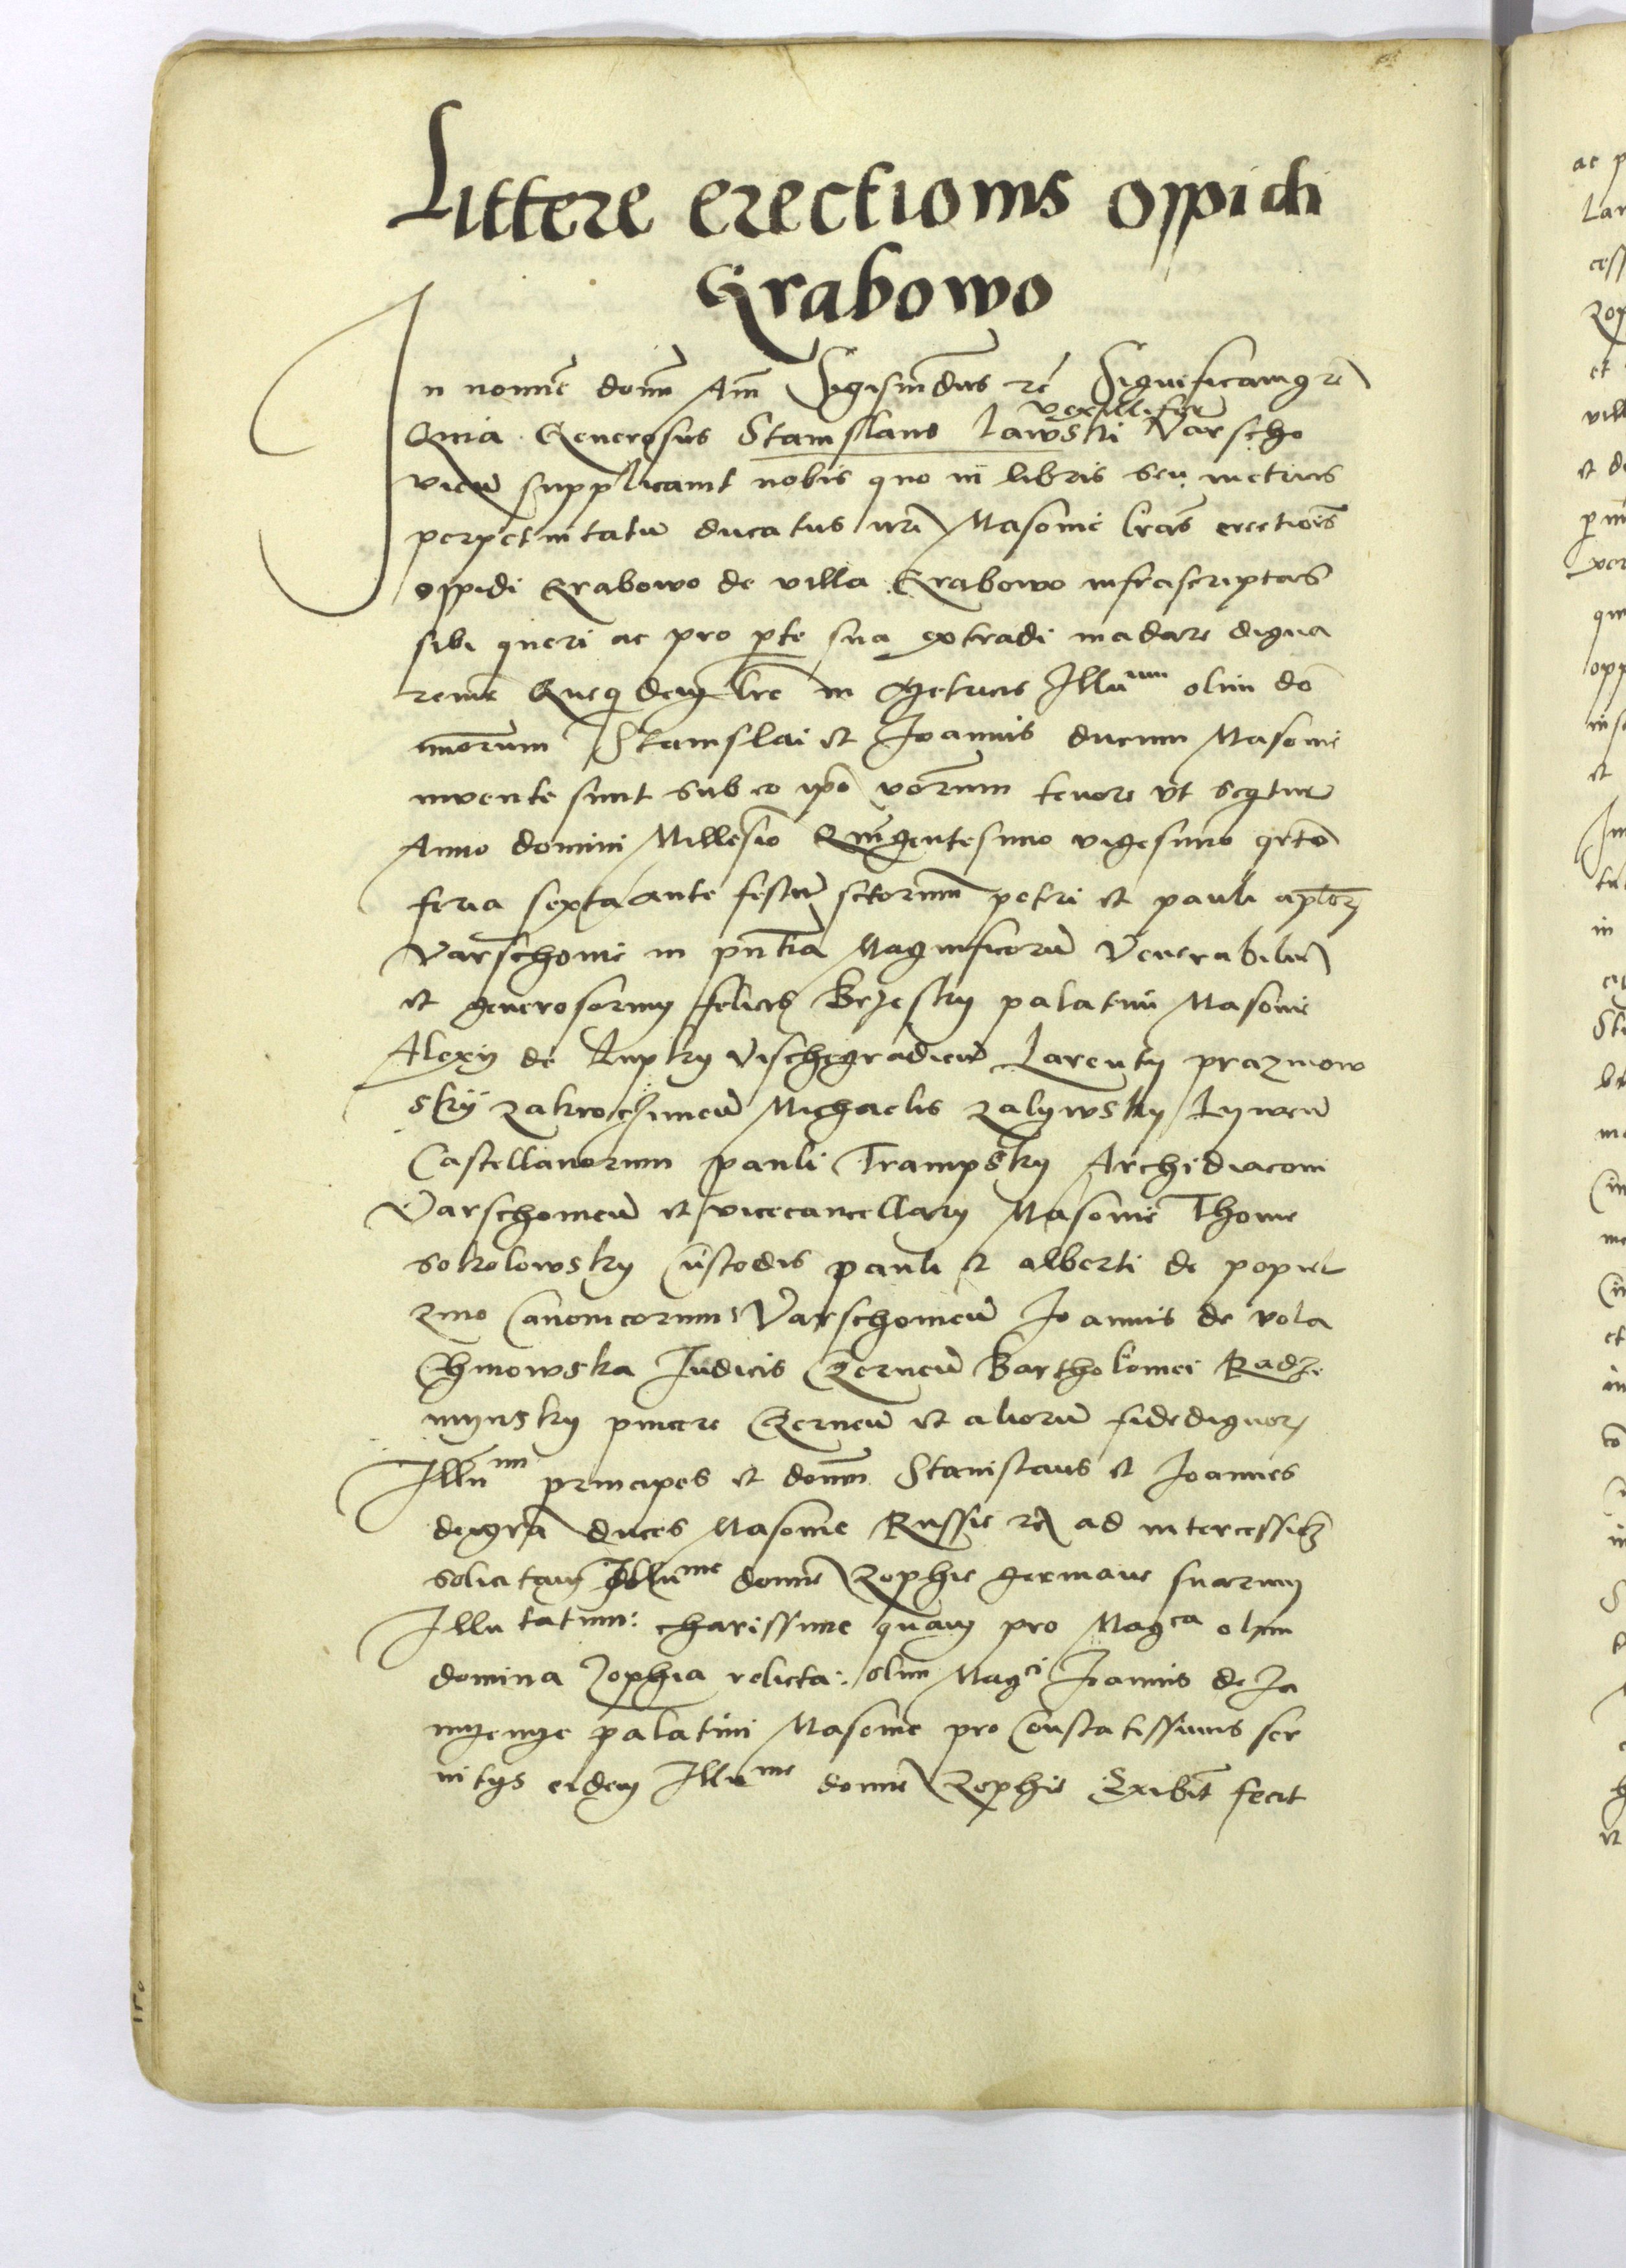 Littere erectionis oppidi
Grabowo
In nomīe domī Am̄ Sigismūdus rē Significamq rē
vexillifer
Quia Generosus Stanislaus Lawski Varscho
vień supplicavit nobis quo in libris seu metricis
perpetuitatū ducatus nr̄i Masovie lr̄as erectiōis
oppidi Grabowo de villa Grabowo infrascriptas
sibi queri ac pro pͬte sua extradi madare digna
remur Quequidem lr̄e in Metricis Illūum olim do
minorum Stanislai et Joannis ducum Masovie
invente sunt sub eo ipō verborum tenore ut seqitur
Anno domini Millesīo Quīgentesimo vigesimo qrto
feria sexta ante festū sctorum petri et pauli apl̄orꝫ
Varschovie in pn̄tia Magnificorū Venerabiliū
et generosorum felicis Brzesky palatini Masovie
Alexij de Kupky Vischegradień Larentij prazmow
skÿ zakroczimień Michaelis zalijwsky Lijwień
Castellanorum pauli Trampsky Archidiaconi
Varschovień et vicecancellarij Masovie Thome
sokolowsky Custodis pauli et alberti de popiel
zino Canonicorum Varschovień Joannis de vola
Chijnowska Judicis Czerneń Bartholomei Radze
mijnsky pincere Czerneń et aliorū fidedignorꝫ
Illūmi principes et domī Stanislaus et Joannes
dei gr̄a duces Masovie Russie rē ad intercessiōꝫ
solicitam Illūme domīe Zophie germane suarum
Illutatum: charissime quam pro Magca olim
domina Zophia relicta: olim Magci Joannis de Ja
mijenije palatini Masovie pro Constatissimis ser
vitijs eidem Illūme domīe Zophie Exibit̄ fecit
150